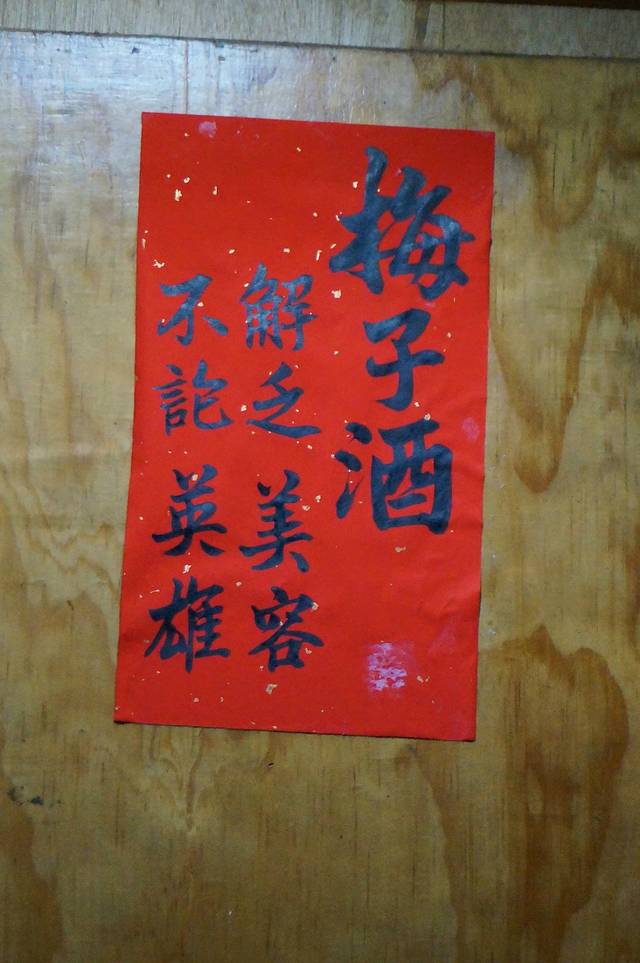 梅子酒
解乏 美容
不論 英雄